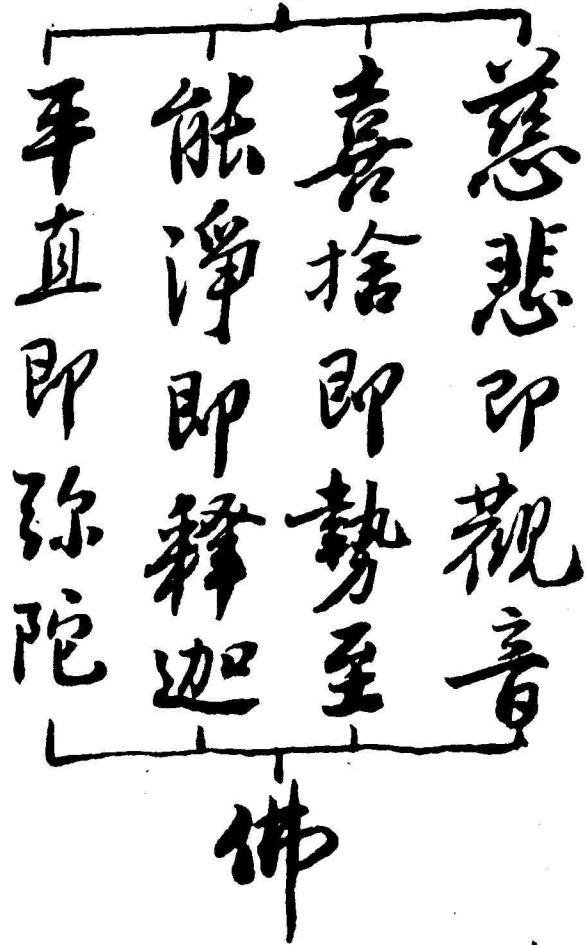 慈悲即觀音
喜捨即勢至
能淨即釋迦
平直即弥陀
佛